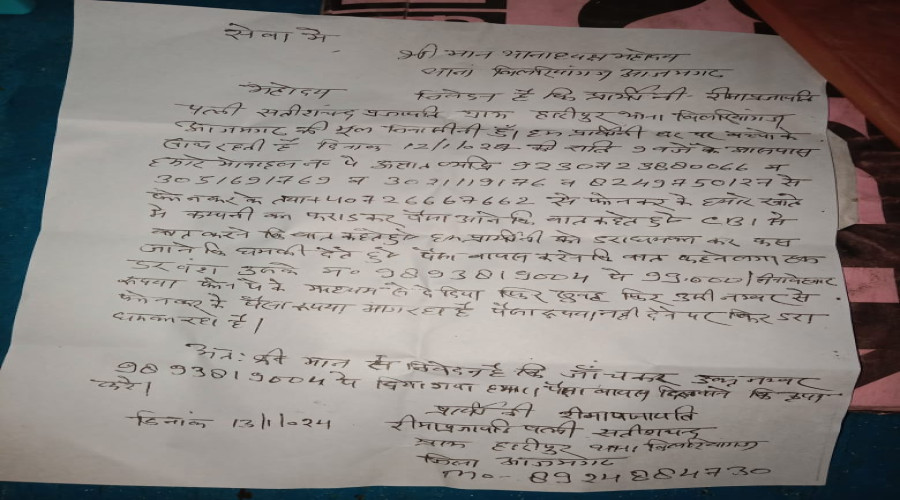 सेवा में,
श्री मान थानाध्यक्ष महोदय
थाना बिलरियागंज आजमगढ
महोदय निवेदन है कि प्रार्थीनी रीमा प्रजापति
पत्नी सतीशचन्द प्रजापति ग्राम हाजीपुर थाना बिलरियागंज
आजमगढ की मूल निवासीनी हूँ। हम प्रार्थीनी घर पर बच्चो के
साथ रहती है दिनांक 12/1/024 को रात्रि 9 बजे के आसपास
हमारे मोबाइल नं० पे अज्ञात व्यक्ति 923072388066 व
3051691769 व 3021119176 व 8249750127 से
फोन कर के तथा 40726667662 से फोन कर के हमारे खाते
मे कम्पनी का फराड कर पैसा आने कि बात कहते हुए CBI से
बात करने कि बात कहते हुए हम प्रार्थीनी को डरा धमका कर
जाने कि धमकी देते हुए पैसा वापस करने कि बात कहने लगा। हम
डर वंश उनके नं० 9893819004 पे 99.600/
रूपया फोन पे के माध्यम से दे दिया फिर सुबह फिर उसी नम्बर से
फोन कर के पैसा रूपया मांग रहा है पैसा रूपया नही देने पर फिर डरा
धमका रहा है।
अतः श्री मान से निवेदन है कि जाँच कर उक्त नम्बर
9893819004 पे दिया गया हमारा पैसा वापस दिलाने कि कृपा
करे।
प्रार्थीनी रीमा प्रजापति
दिनांक 13/1/024 रीमा प्रजापति पत्नी सतीशचन्द
ग्राम हाजीपुर थाना बिलरियागंज
जिला आजमगढ
mo- 8924884730